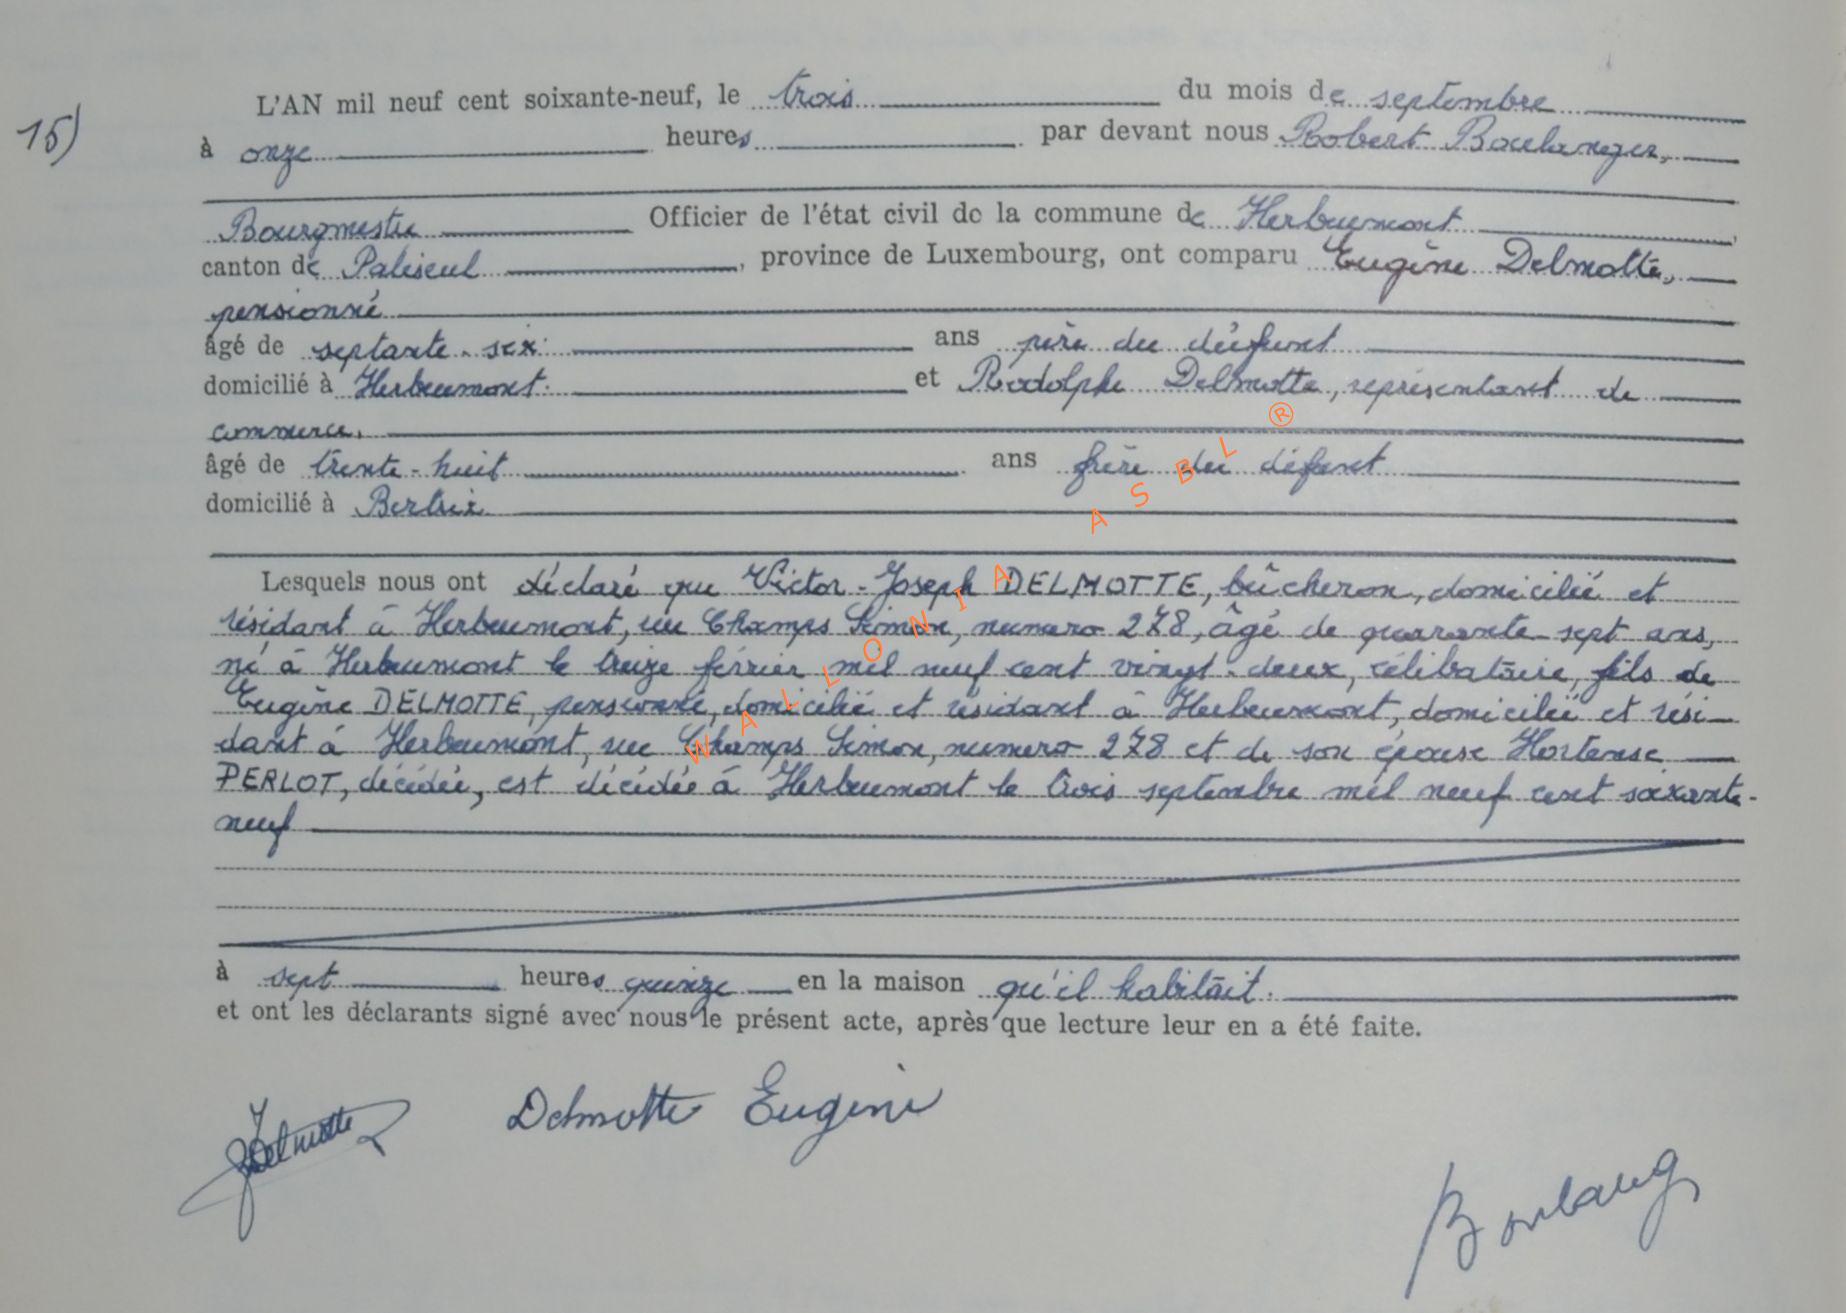 15)
L'AN mil neuf cent soixante-neuf, le trois du mois de septembre
à onze heures par devant nous Robert Boulanger,
Bourgmestre Officier de l'état civil de la commune de Herbeumont
canton de Paliseul, province de Luxembourg, ont comparu Eugène Delmotte,
pensionné
âgé de septante-six ans père du défunt
domicilié à Herbeumont. et Rodolphe Delmotte, représentant de
commerce,
âgé de trente-huit ans frère du défunt
domicilié à Bertrix
Lesquels nous ont déclaré que Victor-Joseph DELMOTTE, bûcheron, domicilié et
résidant à Herbeumont, rue Champs Simon, numéro 278, âgé de quarante-sept ans,
né à Herbeumont le treize février mil neuf cent vingt-deux, célibataire, fils de
Eugène DELMOTTE, pensionné, domicilié et résidant à Herbeumont, domicilié et rési-
dant à Herbeumont, rue Champs Simon, numéro 278 et de son épouse Hortense
PERLOT, décédée, est décédé à Herbeumont le trois septembre mil neuf cent soixante-
neuf
à sept heures quinze en la maison qu'il habitait.
et ont les déclarants signé avec nous le présent acte, après que lecture leur en a été faite.
Delmotte Delmotte Eugène
Boulang
WALLONIA ASBL ®